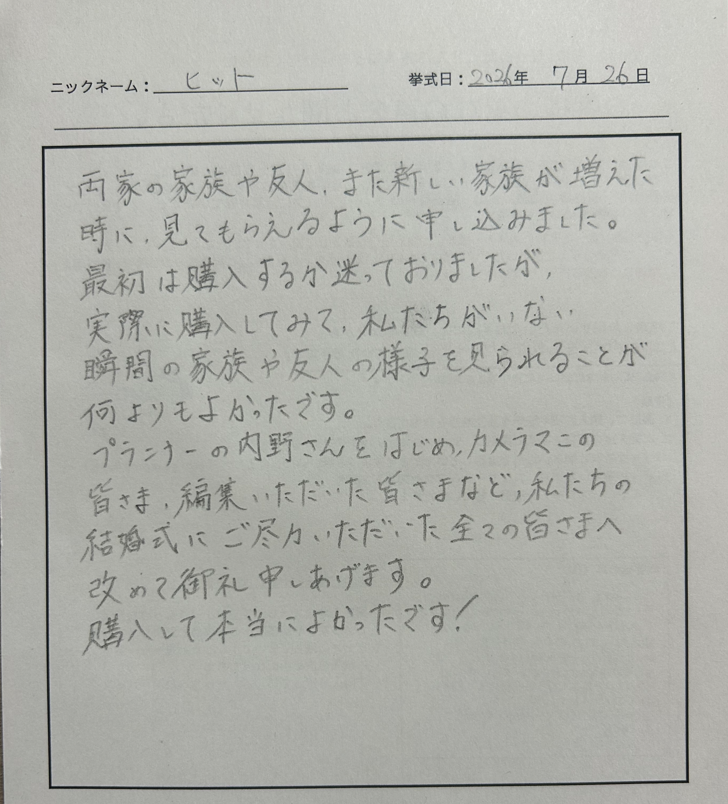 ニックネーム： ヒット
挙式日：2026年 7月 26日
両家の家族や友人、また新しい家族が増えた
時に、見てもらえるように申し込みました。
最初は購入するか迷っておりましたが、
実際に購入してみて、私たちがいない
瞬間の家族や友人の様子を見られることが
何よりもよかったです。
プランナーの内野さんをはじめ、カメラマンの
皆さま、編集いただいた皆さまなど、私たちの
結婚式にご尽力いただいた全ての皆さまへ
改めて御礼申しあげます。
購入して本当によかったです！